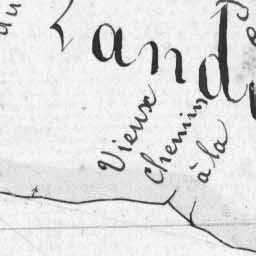 Land
Vieux
Chemin
à la